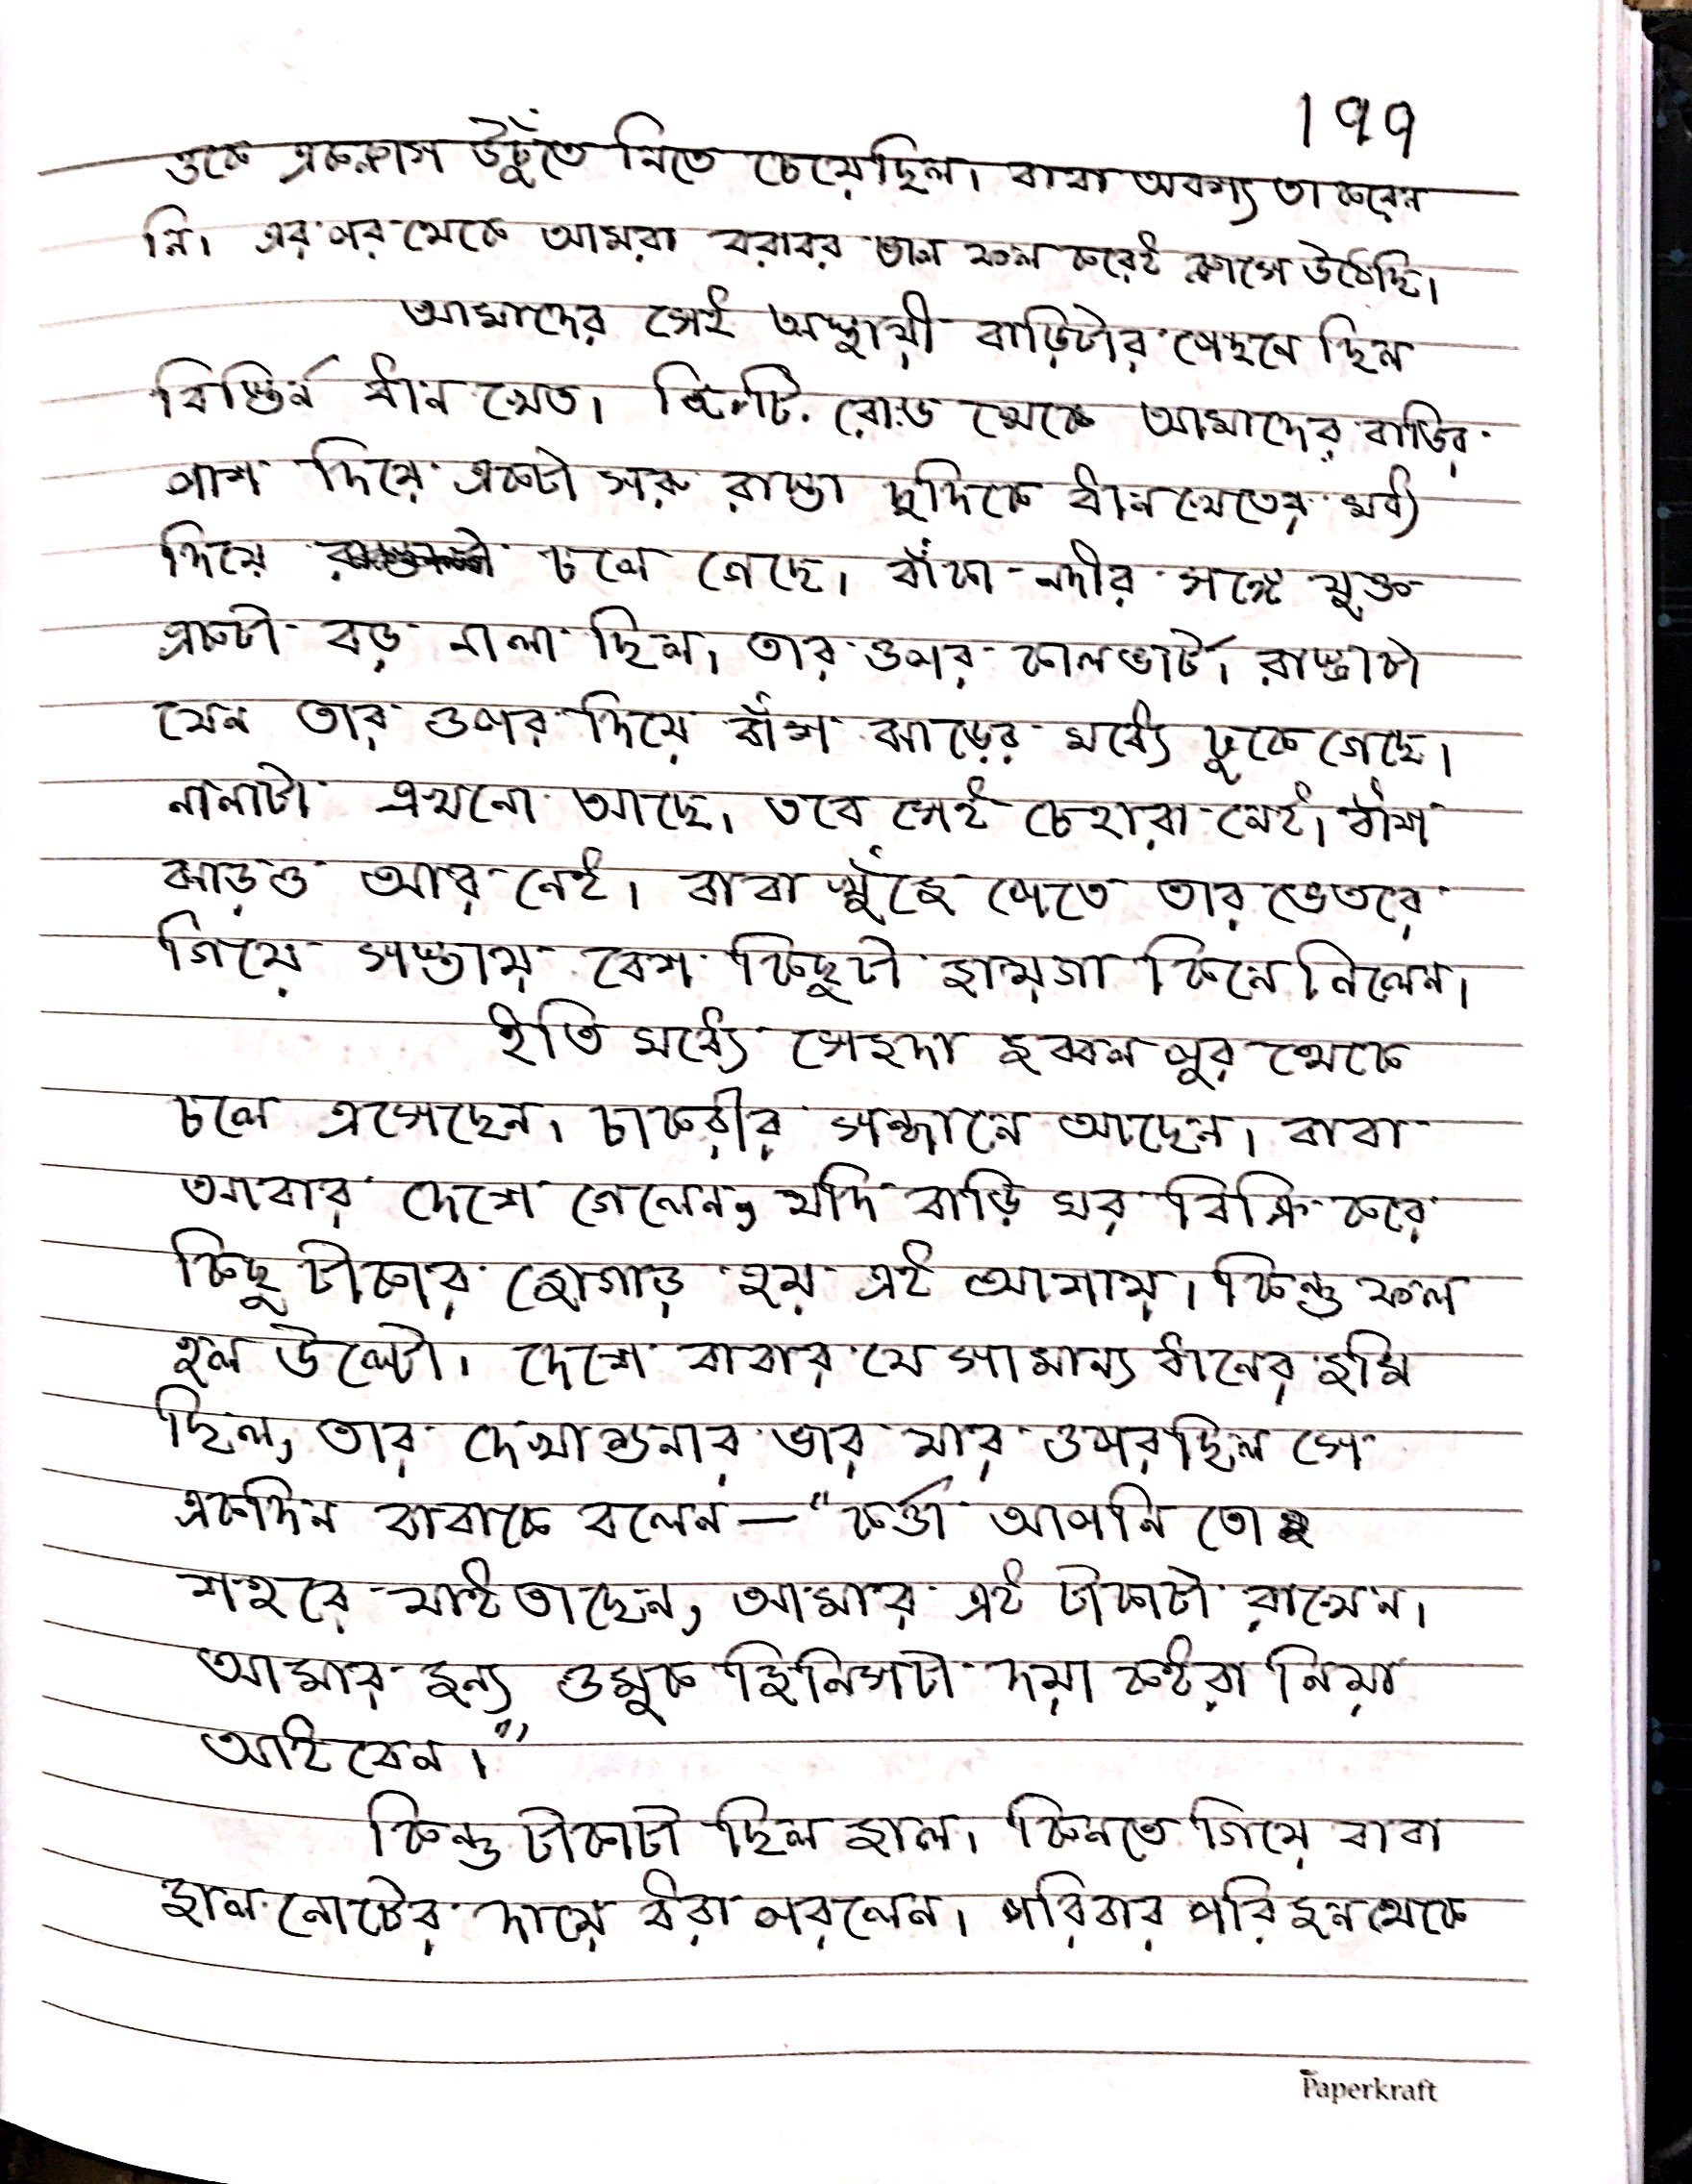 ১৭৭
ওকে একক্লাস উঁচুঁতে নিতে চেয়েছিল। বাবা অবশ্য তা করেন
নি। এর পর থেকে আমরা বরাবর ভাল ফল করেই ক্লাসে উঠেছি।
আমাদের সেই অস্থায়ী বাড়িটার পেছনে ছিল
বিস্তির্ন ধান খেত। রোড থেকে আমাদের বাড়ির
পাশ দিয়ে একটা সরু রাস্তা দুদিকে ধান খেতের মধ্য
দিয়ে চলে গেছে। বাঁকা নদীর সঙ্গে যুক্ত
একটা বড় নালা ছিল, তার ওপর কালভার্ট। রাস্তাটা
যেন তার ওপর দিয়ে বাঁশ ঝাড়ের মধ্যে ঢুকে গেছে।
নালাটা এখনো আছে, তবে সেই চেহারা নেই। বাঁশ
ঝাড়ও আর নেই। বাবা খুঁজে পেতে তার ভেতরে
গিয়ে সস্তায় বেশ কিছুটা জায়গা কিনে নিলেন।
ইতি মধ্যে সেজদা জব্বলপুর থেকে
চলে এসেছেন। চাকরীর সন্ধানে আছেন। বাবা
আবার দেশে গেলেন, যদি বাড়ি ঘর বিক্রি করে
কিছু টাকার জোগাড় হয় এই আশায়। কিন্তু ফল
হল উল্টো। দেশে বাবার যে সামান্য ধানের জমি
ছিল, তার দেখাশুনার ভার যার ওপর ছিল সে
একদিন বাবাকে বলেন — "কর্ত্তা আপনি তো
শহরে যাইতাছেন, আমার এই টাকাটা রাখেন।
আমার জন্য ওমুক জিনিসটা দয়া কইরা নিয়া
আইবেন।"
কিন্তু টাকাটা ছিল জাল। কিনতে গিয়ে বাবা
জাল নোটের দায়ে ধরা পরলেন। পরিবার পরিজন থেকে
Paperkraft